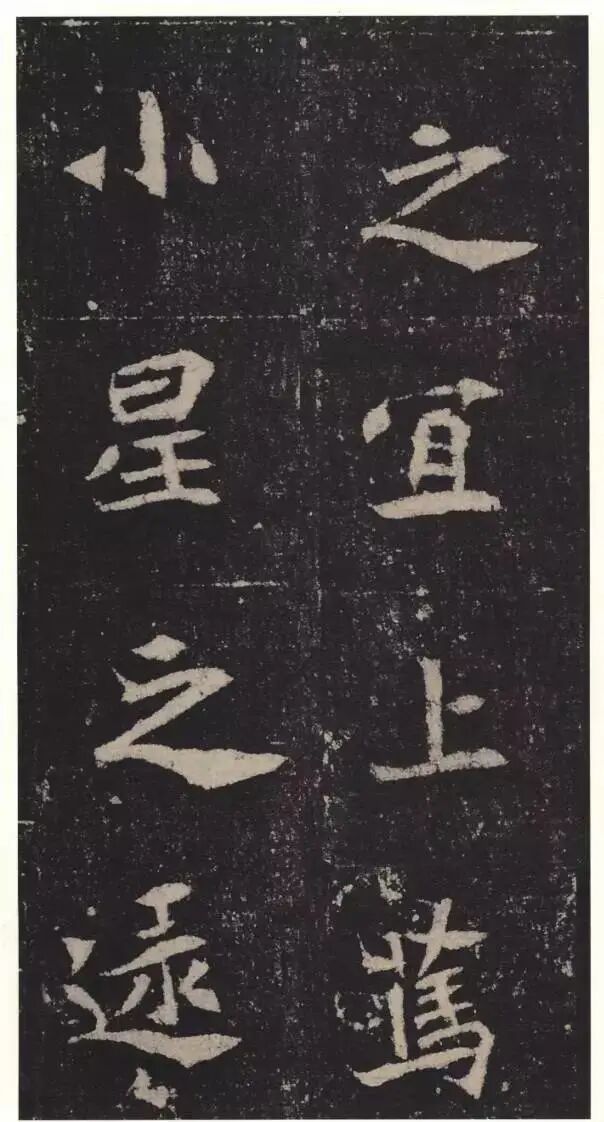 之宜上篤
小星之逮